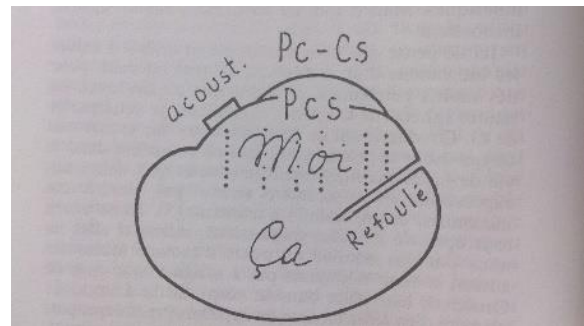 Pc-Cs
acoust.
Pcs
Moi
Ça
Refoulé